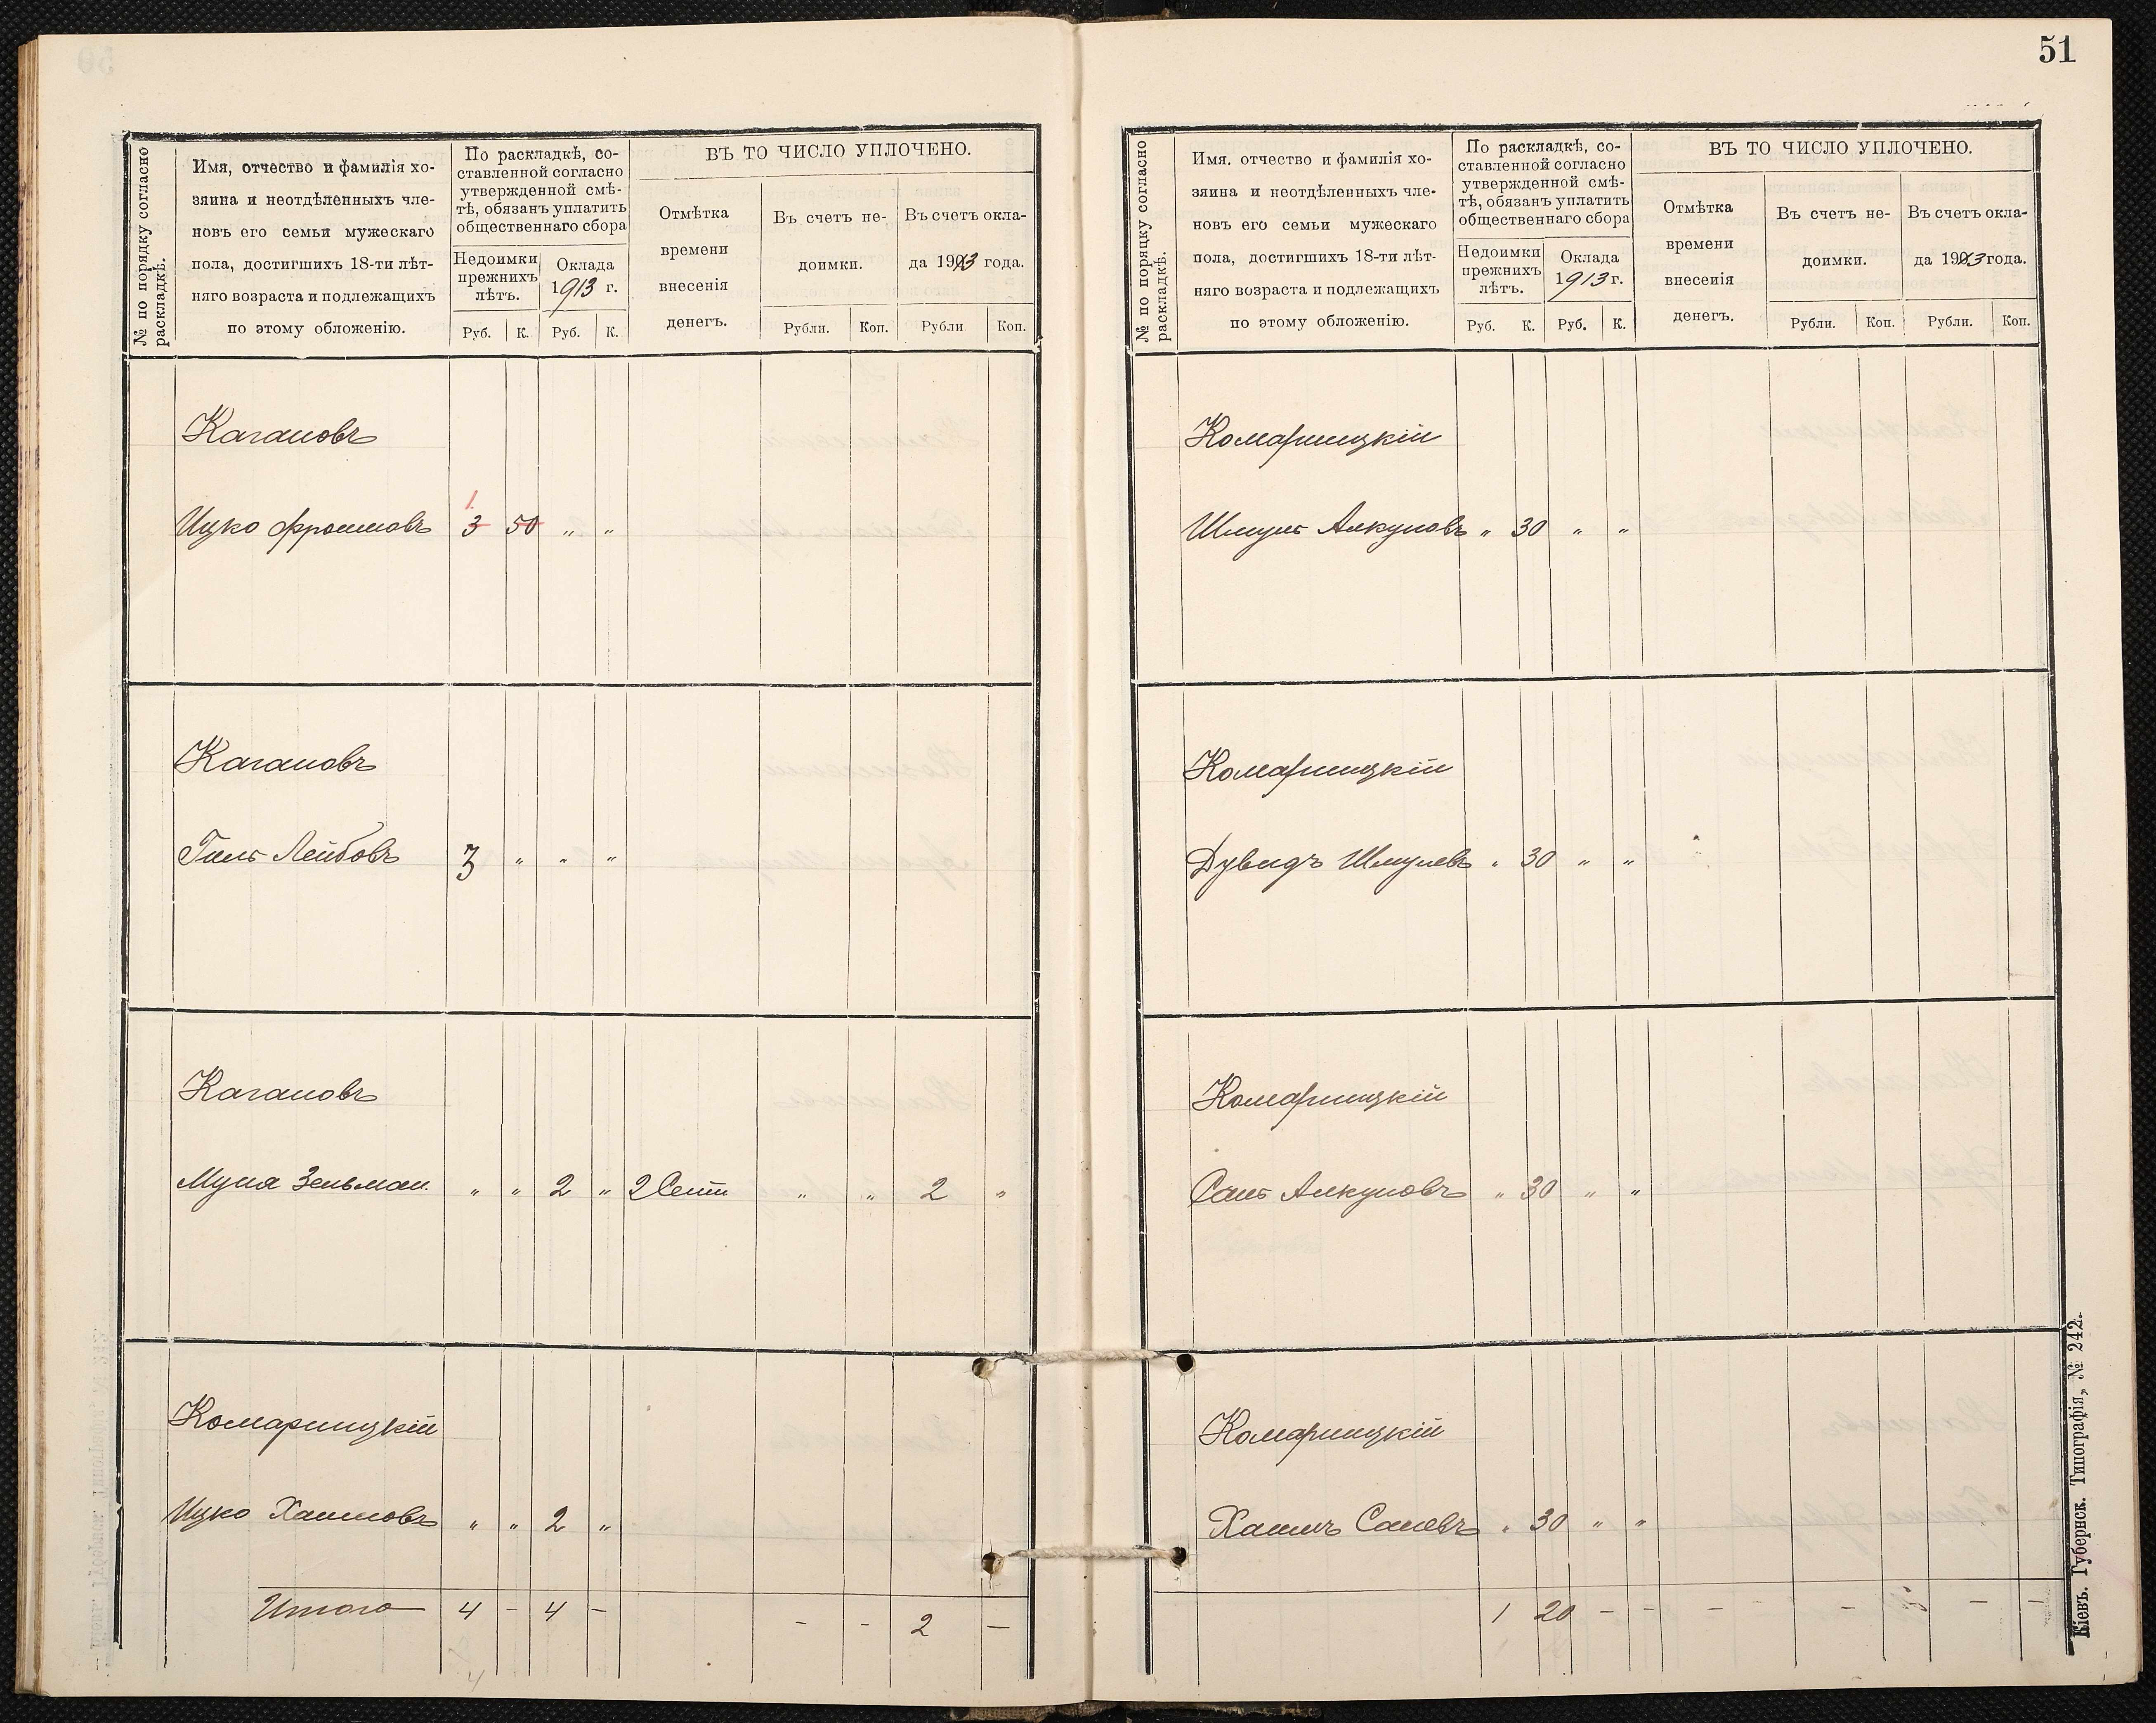 № по порядку согласно
раскладкѣ.
Имя, отчество и фамилія хо-
зяина и неотдѣленныхъ чле-
новъ его семьи мужескаго
пола, достигшихъ 18-ти лѣт-
няго возраста и подлежащихъ
по этому обложенію.
По раскладкѣ, со-
ставленной согласно
утвержденной смѣ-
тѣ, обязанъ уплатить
общественнаго сбора
Недоимки
прежнихъ
лѣтъ.
Оклада
1913 г.
Руб. К. Руб. К.
ВЪ ТО ЧИСЛО УПЛОЧЕНО.
Отмѣтка
времени
внесенія
денегъ.
Въ счетъ не-
доимки.
Въ счетъ окла-
да 1913 года.
Рубли. Коп. Рубли Коп.
Кагановъ
1
Ицко Фроимовъ 3 50 „ „
Кагановъ
Гиль Лейбовъ 3 „ „ „
Кагановъ
Муня Зельман. „ „ 2 „ 2 Сент „ „ 2 „
Комарницкій
Ицко Хаимовъ „ „ 2 „
Итого 4 - 4 - - - 2 -
51
№ по поряцку согласно
раскладкѣ.
Имя. отчество и фамилія хо-
зяина и неотдѣленныхъ чле-
новъ его семьи мужескаго
пола, достигшихъ 18-ти лѣт-
няго возраста и подлежащихъ
по этому обложенію.
По раскладкѣ, со-
ставленной согласно
утвержденной смѣ-
тѣ, обязанъ уплатить
общественнаго сбора
Недоимки
прежнихъ
лѣтъ.
Оклада
1913 г.
Руб. К. Руб. К.
ВЪ ТО ЧИСЛО УПЛОЧЕНО.
Отмѣтка
времени
внесенія
денегъ.
Въ счетъ не-
доимки.
Въ счетъ окла-
да 1913 года.
Рубли. Коп. Рубли. Коп.
Комарницкій
Шмуль Алкуновъ „ 30 „ „
Комарницкій
Дувидъ Шмулевъ „ 30 „ „
Комарницкій
Сань Алкуновъ „ 30 „ „
Комарницкій
Хаимъ Саневъ „ 30 „ „
1 20 - - - - - -
Кіевъ. Губернск. Типографія, № 242.